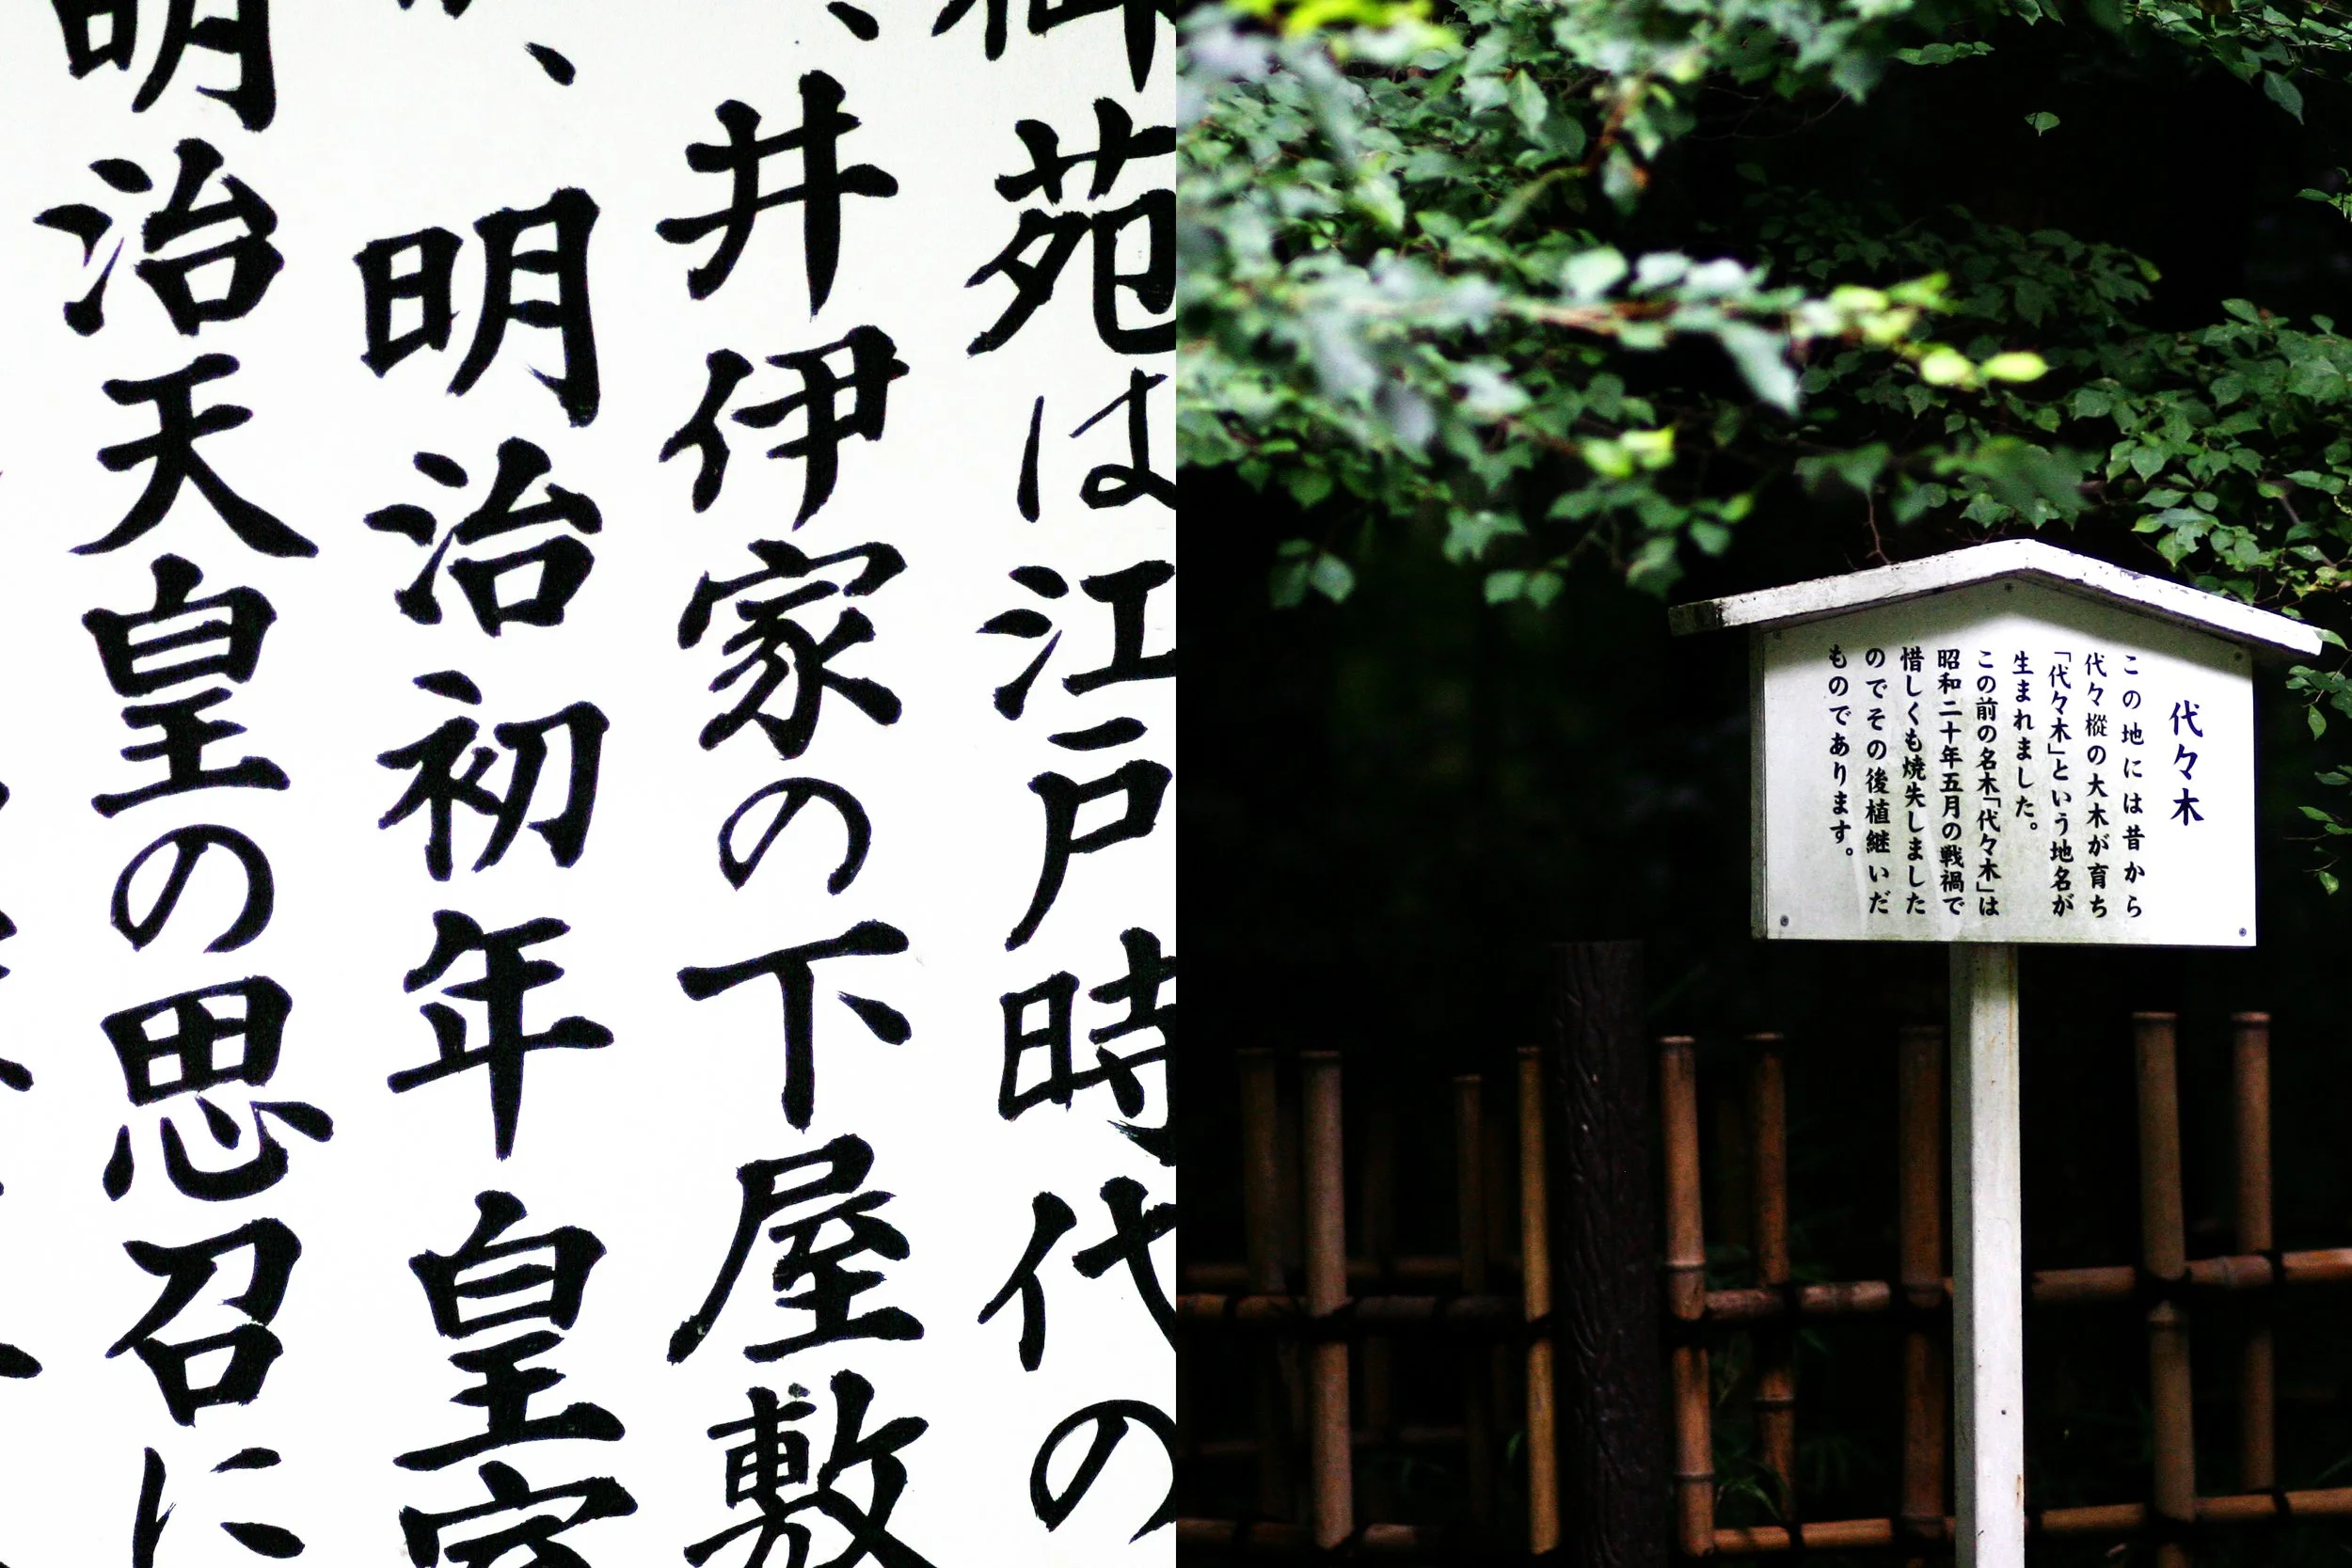 苑は江戸時代の
井伊家の下屋敷
、明治初年皇室
明治天皇の思召に
代々木
この地には昔から
代々樅の大木が育ち
「代々木」という地名が
生まれました。
この前の名木「代々木」は
昭和二十年五月の戦禍で
惜しくも焼失しました
のでその後植継いだ
ものであります。